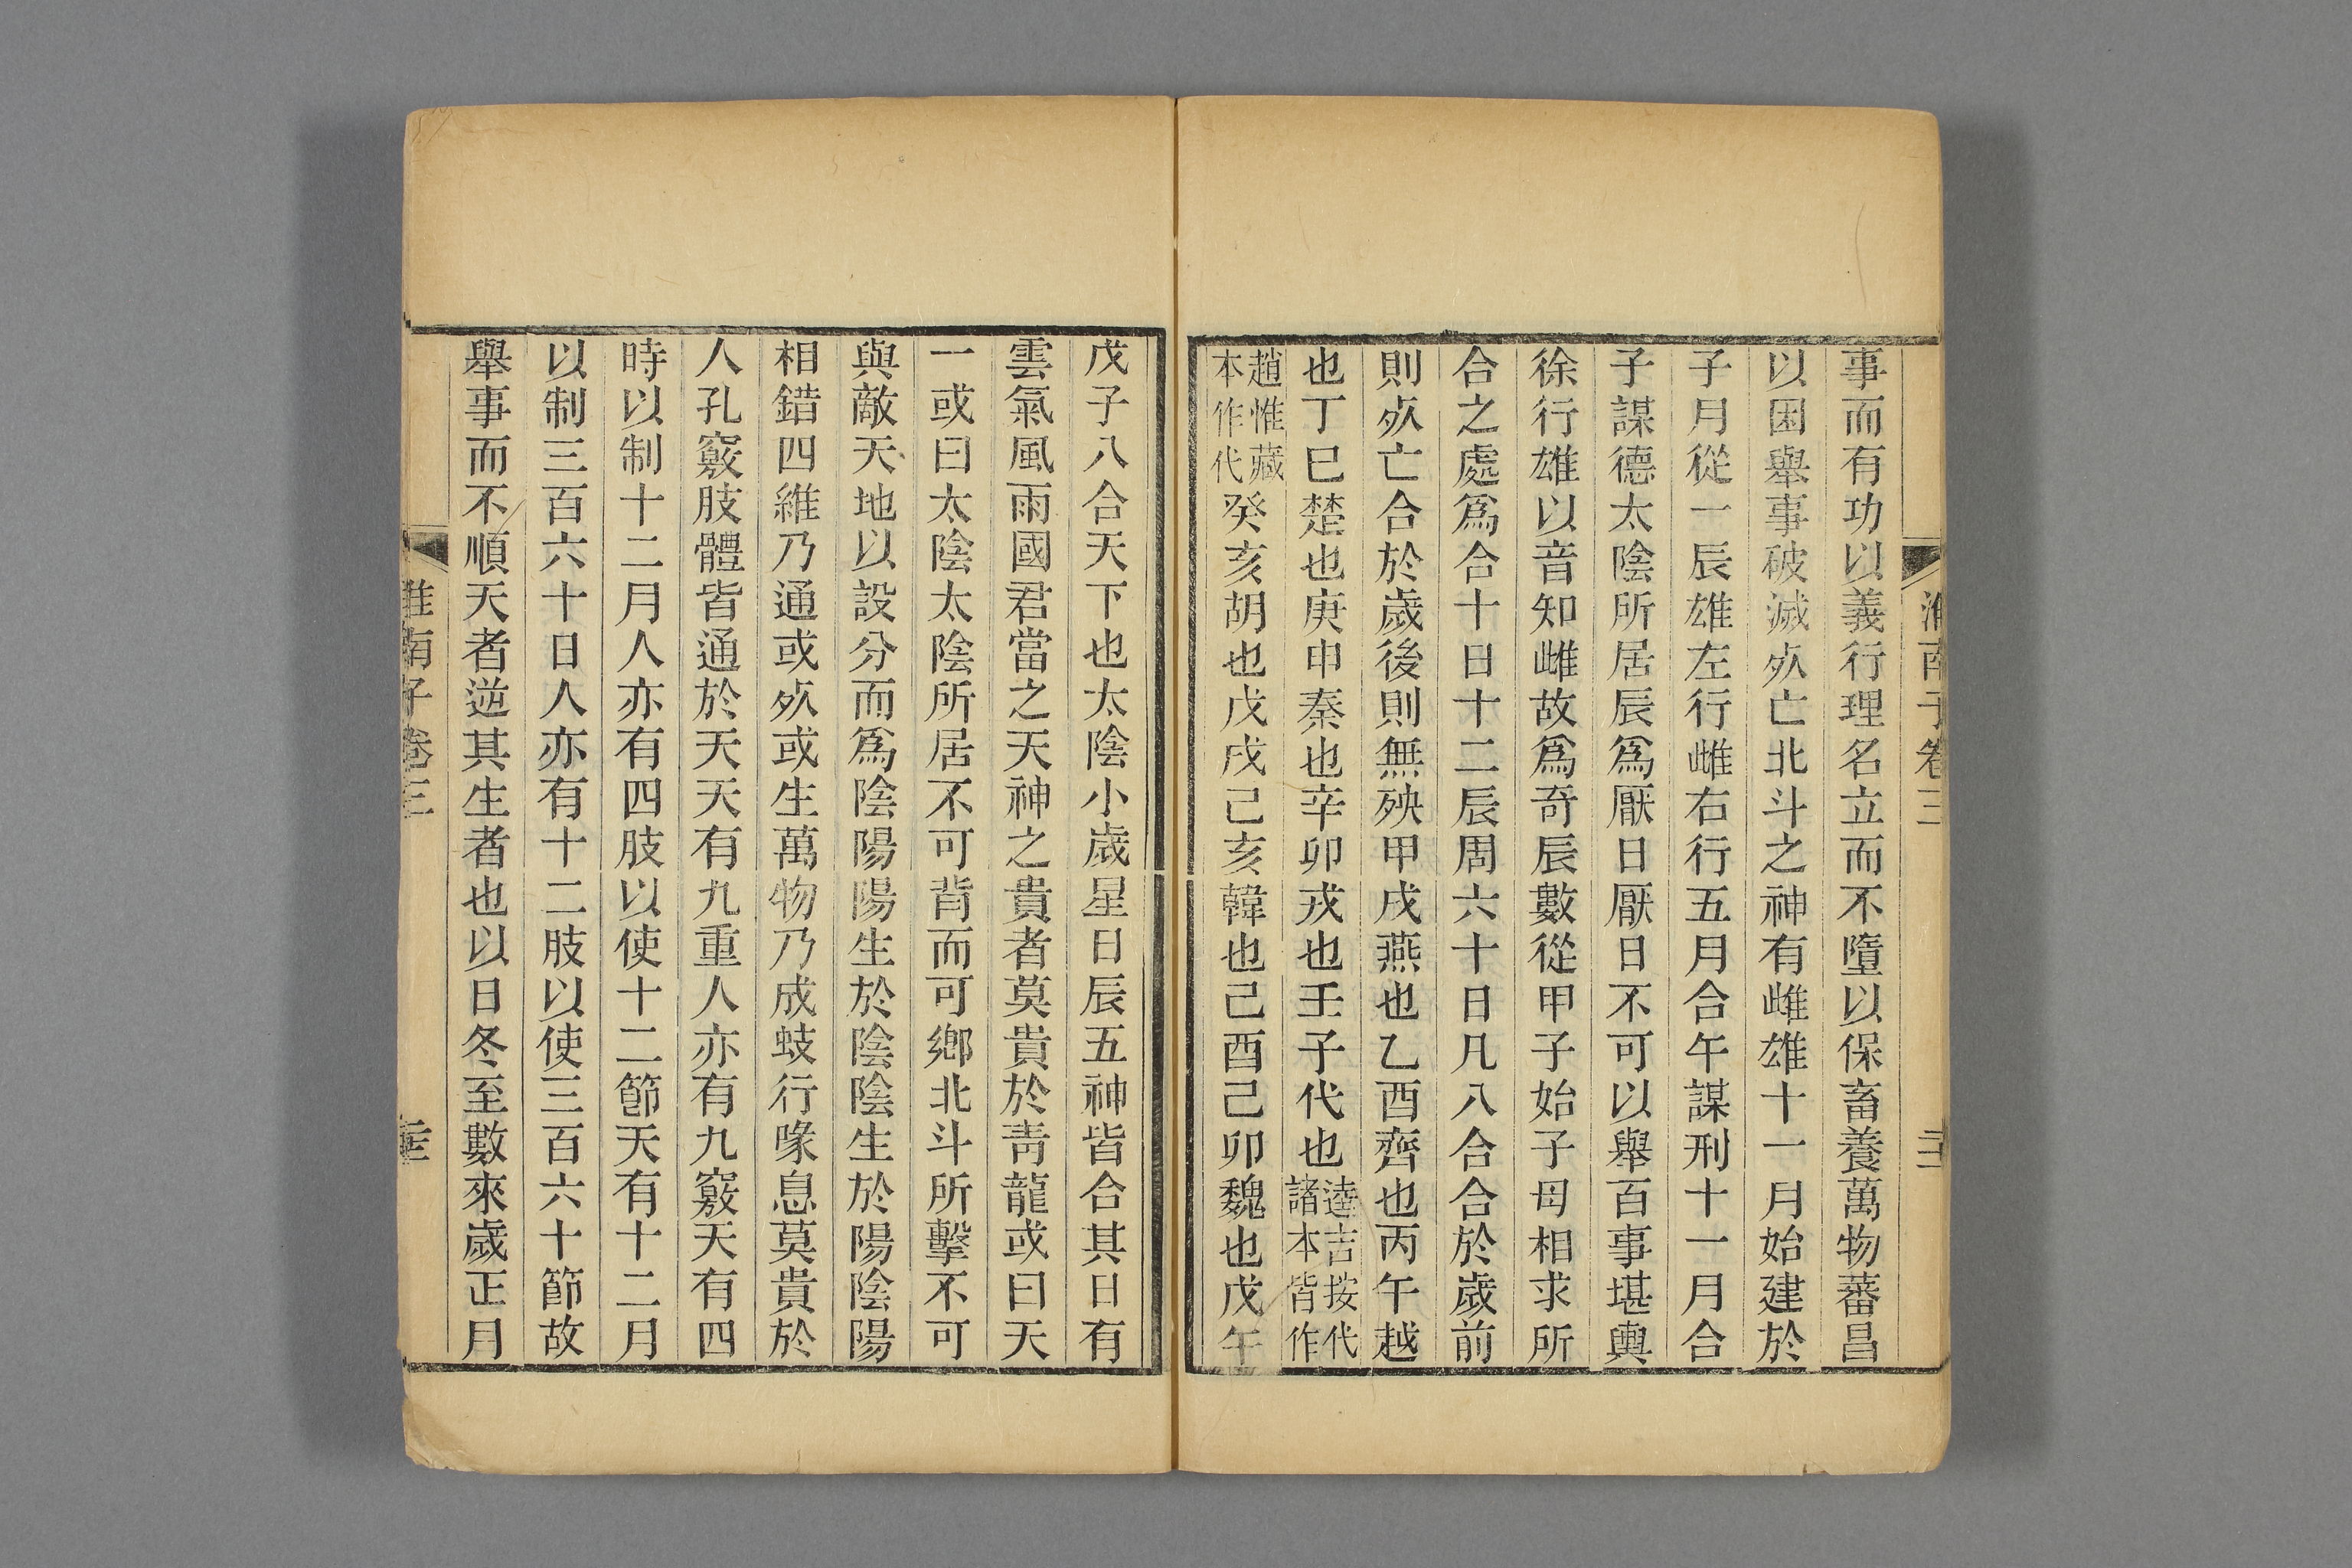 淮南子卷三
事而有功以義行理名立而不墮以保畜養萬物蕃昌
以困舉事破滅死亡北斗之神有雌雄十一月始建於
子月從一辰雄左行雌右行五月合午謀刑十一月合
子謀德太陰所居辰爲厭日厭日不可以舉百事堪輿
徐行雄以音知雌故爲奇辰數從甲子始子母相求所
合之處爲合十日十二辰周六十日凡八合合於歲前
則死亡合於歲後則無殃甲戌燕也乙酉齊也丙午越
也丁巳楚也庚申秦也辛卯戎也壬子代也逵吉按代諸本皆作
趙惟藏本作代癸亥胡也戊戌己亥韓也己酉己卯魏也戊午
戊子八合天下也太陰小歲星日辰五神皆合其日有
雲氣風雨國君當之天神之貴者莫貴於靑龍或曰天
一或曰太陰太陰所居不可背而可鄉北斗所擊不可
與敵天地以設分而爲陰陽陽生於陰陰生於陽陰陽
相錯四維乃通或死或生萬物乃成蚑行喙息莫貴於
人孔竅肢體皆通於天天有九重人亦有九竅天有四
時以制十二月人亦有四肢以使十二節天有十二月
以制三百六十日人亦有十二肢以使三百六十節故
舉事而不順天者逆其生者也以日冬至數來歲正月
淮南子卷三